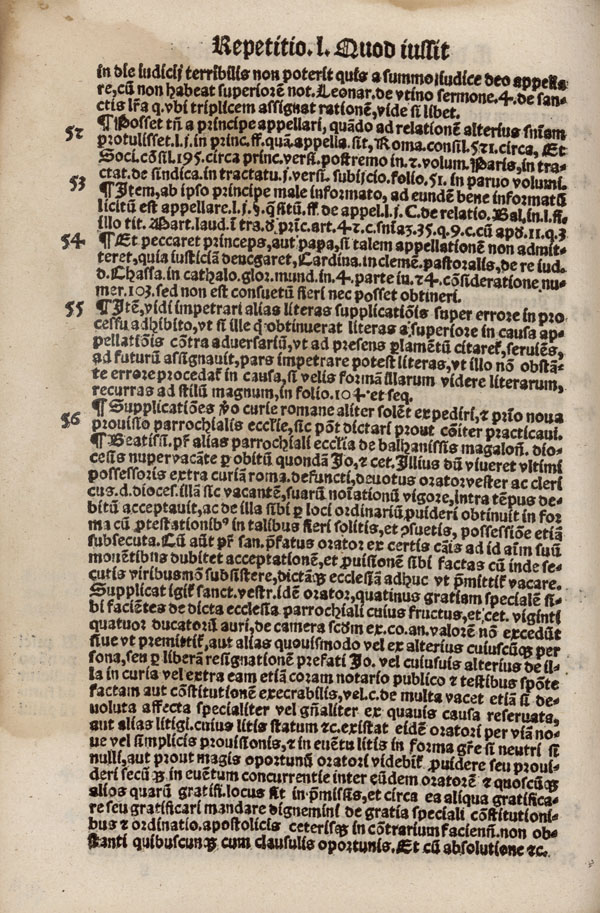 Repetitio. l. Quod iussit
in die iudicij terribilis non poterit quis a summo iudice deo appella
re, cũ non habeat superiorẽ not. Leonar. de vtino sermone. 4. de san-
ctis lr̃a q. vbi triplicem assignat rationẽ, vide si libet.
52 ¶ Posset tñ a principe appellari, quãdo ad relationẽ alterius sñiam
protulisset. l. j. in princ. ff. quã. appella. sit, Roma. consil. 521. circa, Et
Soci. cõsil. 195. circa princ. versi. postremo in. 2. volum. Paris, in tra-
ctat. de sindica. in tractatu. j. versi. subijcio. folio. 51. in paruo volumi.
53 ¶ Item, ab ipso principe male informato, ad eundẽ bene informatũ
licitũ est appellare. l. j. §. q̃sitũ. ff. de appel. l. j. C. de relatio. Bal, in. l. ff.
illo tit. Bart. laud. ĩ tra. d. prĩc. art. 4. 2. c. sñia3. 35. q. 9. c. cũ apð. 11. q. 3
54 ¶ Et peccaret princeps, aut papa, si talem appellationẽ non admit-
teret, quia iusticiã denegaret, Cardina. in clemẽ. pastoralis, de re iud.
d. Chassa. in cathalo. glor. mund. in. 4. parte iu. 2 4. cõsideratione nu-
mer. 103. sed non est consuetũ fieri nec posset obtineri.
55 ¶ Itẽ, vidi impetrari alias literas supplicatiõis super errore in pro
cessu adhibito, vt si ille q̃ obtinuerat literas a superiore in causa ap-
pellatiõis cõtra aduersariũ, vt ad presens ꝑlamẽtũ citareť, seruiẽs,
ad futurũ assignauit, pars impetrare potest literas, vt illo nõ obstã-
te errore procedať in causa, si velis formã illarum videre literarum,
recurras ad stilũ magnum, in folio. 104. et seq.
56 ¶ Supplicatiões ꝟo curie romane aliter solẽt expediri, 2 prĩo noua
prouisio parrochialis ecclie, sic põt dictari prout cõiter practicaui.
¶ Beatissi. pr̃. alias parrochiali ecclia de balhanissis magaloñ. dio-
cesis nuper vacãte ꝑ obitũ quondã Jo, 2 cet. Illius dũ viueret vltimi
possessoris extra curiã roma. defuncti, deuotus orator vester ac cleri
cus. d. dioces. illã sic vacantẽ, suarũ noĩationũ vigore, intra tẽpus de-
bitũ acceptauit, ac de illa sibi ꝑ loci ordinariũ ꝓuideri obtinuit in for
ma cũ ꝓtestationibꝰ in talibus fieri solitis, et ꝯsuetis, possessiõe etiã
subsecuta. Cũ aũt pr̃. san. p̃fatus orator ex certis cãis ad id aĩm suũ
mouẽtibus dubitet acceptationẽ, et ꝓuisionẽ sibi factas cũ inde se-
cutis viribus nõ subsistere, dictãqꝫ ecclesiã adhuc vt p̃mittiť vacare.
Supplicat igiť sanct. vestr. idẽ orator, quatinus gratiam specialẽ si-
bi faciẽtes de dicta ecclesia parrochiali cuius fructus, et cet. viginti
quatuor ducatorũ auri, de camera scðm ex. co. an. valorẽ nõ excedũt
siue vt premittiť, aut alias quouismodo vel ex alterius cuiuscũqꝫ per
sona, seu ꝑ liberã resignationẽ prefati Jo. vel cuiusuis alterius de il-
la in curia vel extra eam etiã coram notario publico 2 testibus spõte
factam aut cõstitutionẽ execrabilis, vel. c. de multa vacet etiã si de-
uoluta affecta specialiter vel gñaliter ex quauis causa reseruata,
aut alias litigi. cuius litis statum 2c. existat eidẽ oratori per viã no-
ue vel simplicis prouisionis, 2 in euẽtu litis in forma gr̃e si neutri si
nulli, aut prout magis oportunũ oratori videbiť ꝓuidere seu proui-
deri secũ qꝫ in euẽtum concurrentie inter eũdem oratorẽ 2 quoscũqꝫ
alios quarũ gratifi. locus sit in p̃missis, et circa ea aliqua gratifica-
re seu gratificari mandare dignemini de gratia speciali cõstitutioni-
bus 2 ordinatio. apostolicis ceterisqꝫ in cõtrarium faciensũ. non ob-
stanti quibuscunqꝫ cum clausulis oportunis. Et cũ absolutione 2c.